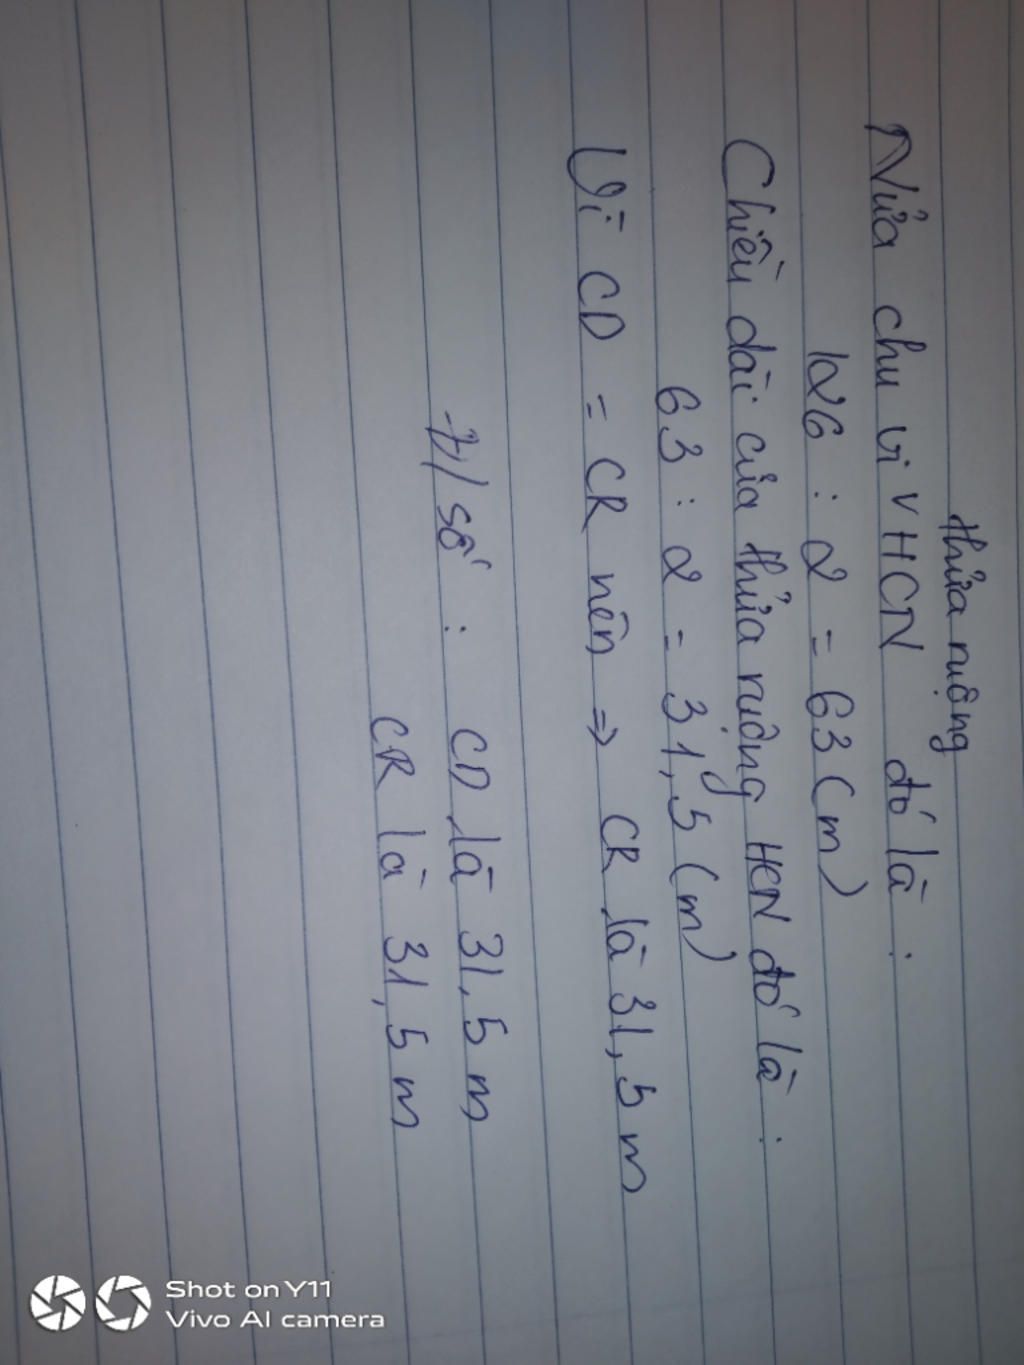 thửa ruộng
Nửa chu vi v HCN đó là :
126 : 2 = 63 (m)
Chiều dài của thửa ruộng HCN đó là :
63 : 2 = 31,5 (m)
Vì CD = CR nên => CR là 31,5 m
Đ/số : CD là 31,5 m
CR là 31,5 m
Shot on Y11
Vivo AI camera